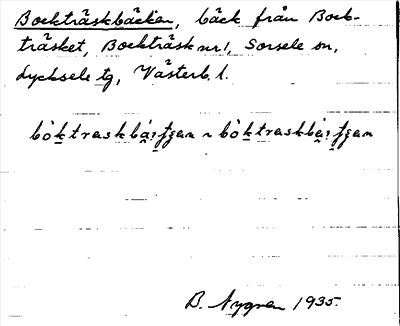 Bockträskbäcken, bäck från Bock-
träsket, Bockträsk nr 1, Sorsele sn,
Lycksele tg, Västerb. l.
bòktraskbá̤:tjan ~ bòktraskbá̤:tjan
B. Nygren 1935.